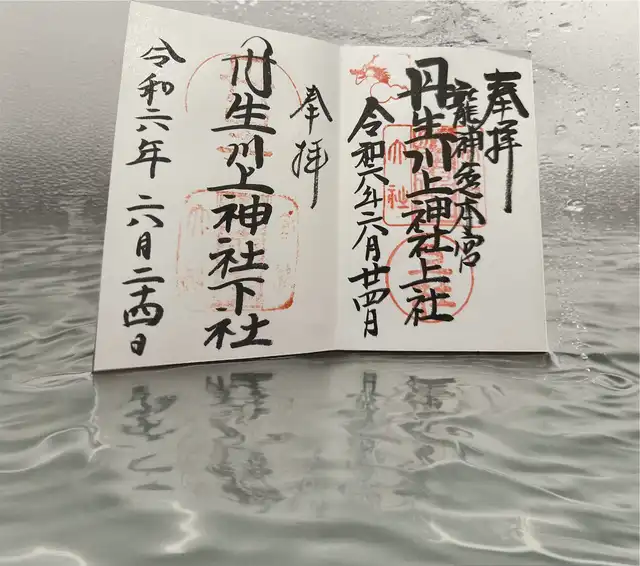 奉拝
龍神総本宮
丹生川上神社上社
令和六年六月廿四日
奉拝
丹生川上神社下社
令和六年六月二十四日